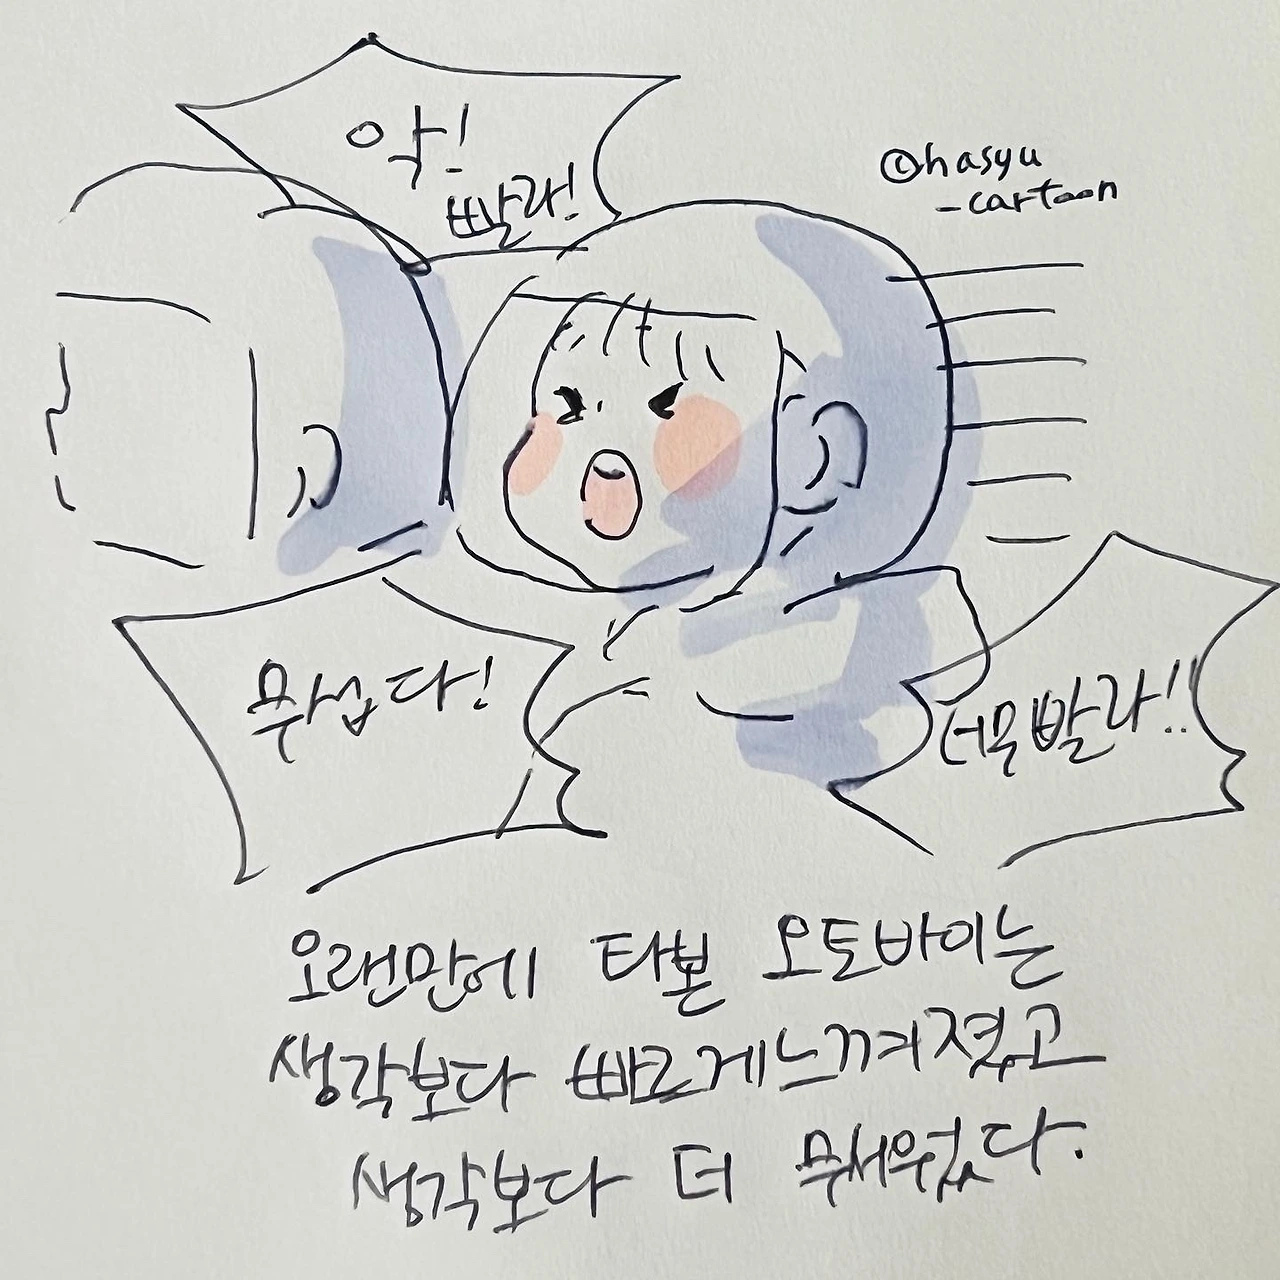 악!
빨라!
©hasyu
-cartoon
무섭다!
너무빨라!!
오랜만에 타본 오토바이는
생각보다 빠르게느껴졌고
생각보다 더 무서웠다.